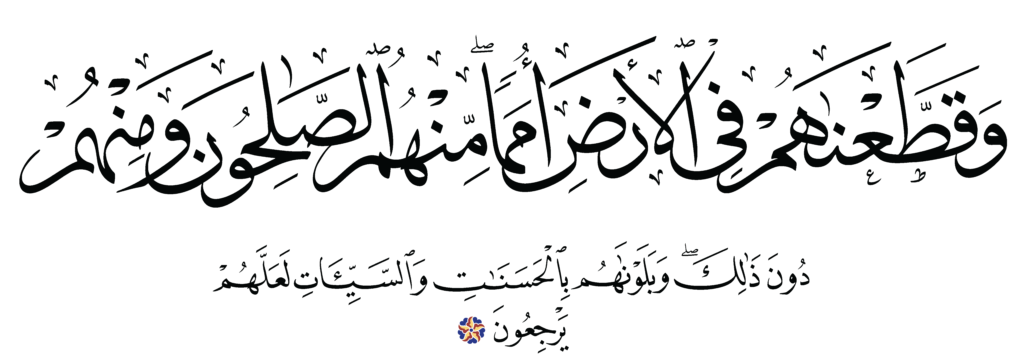 وَقَطَّعْنَاهُمْ فِي الْأَرْضِ أُمَمًا ۖ مِّنْهُمُ الصَّالِحُونَ وَمِنْهُمْ
دُونَ ذَٰلِكَ ۖ وَبَلَوْنَاهُم بِالْحَسَنَاتِ وَالسَّيِّئَاتِ لَعَلَّهُمْ
يَرْجِعُونَ